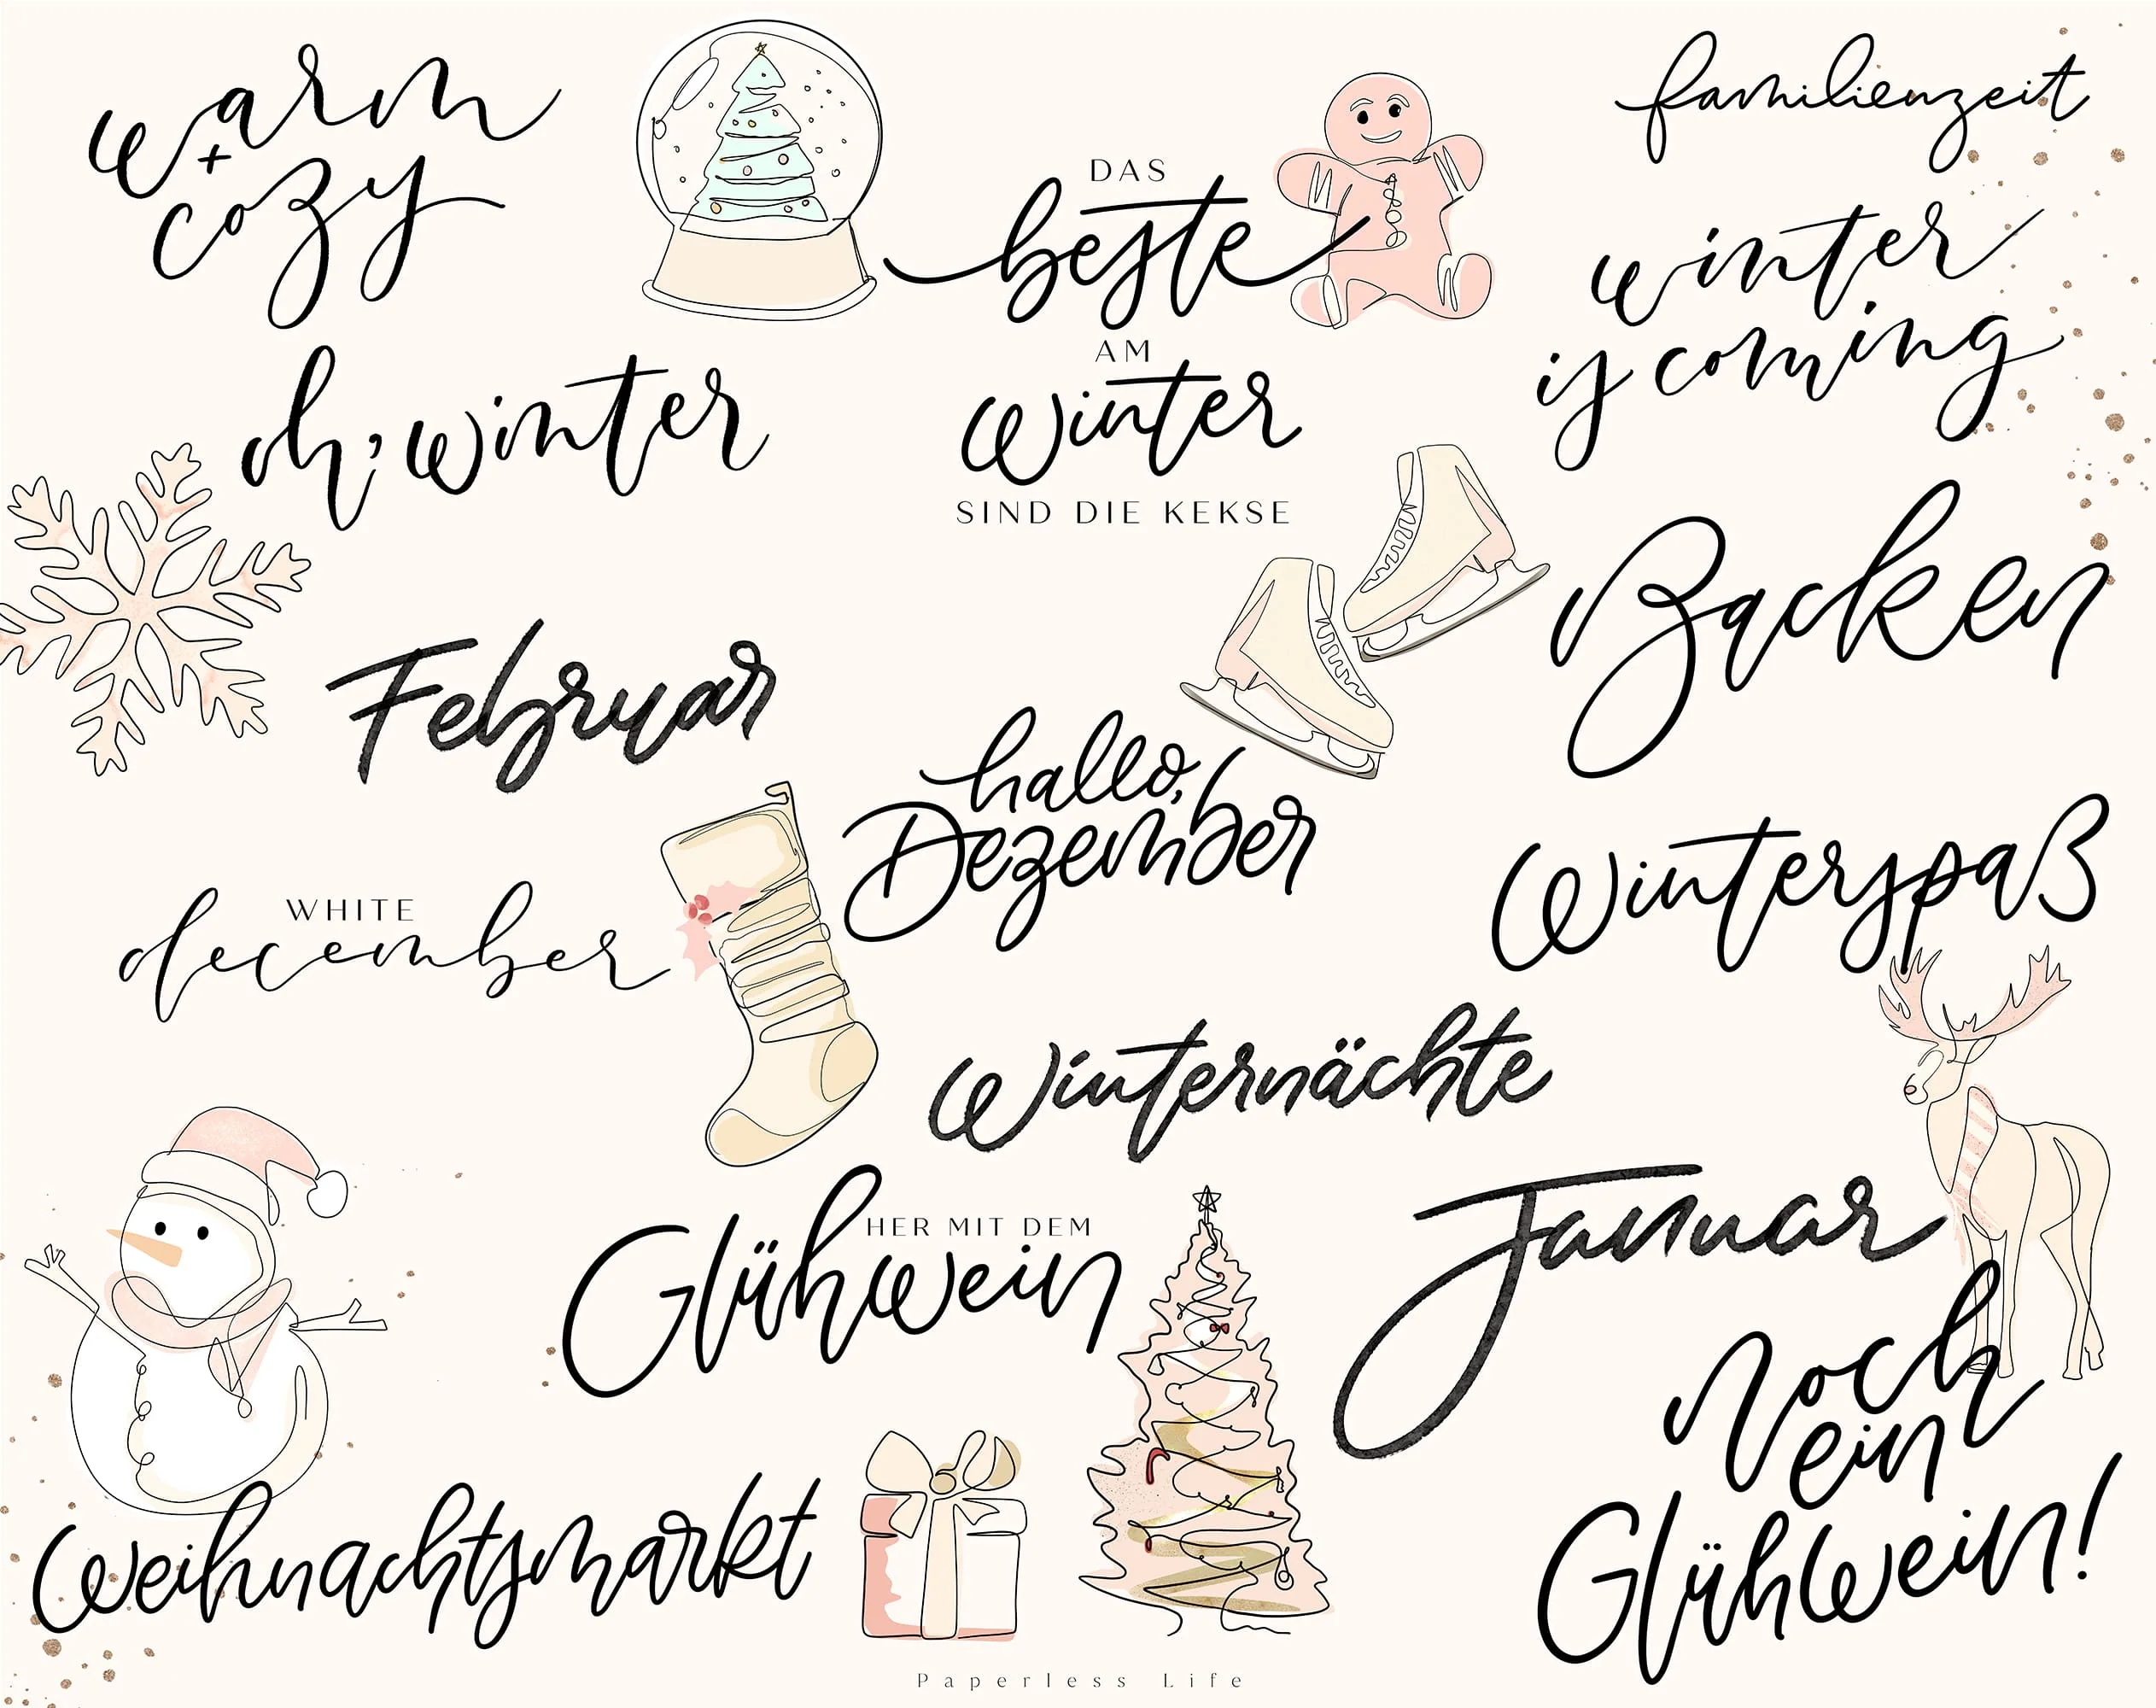 warm
+
cozy
DAS
beste
AM
winter
SIND DIE KEKSE
familienzeit
winter
is coming
oh, winter
Backen
Februar
hallo,
Dezember
Winterspaß
WHITE
december
Winternächte
HER MIT DEM
Glühwein
Januar
noch
ein
Glühwein!
Weihnachtsmarkt
Paperless Life